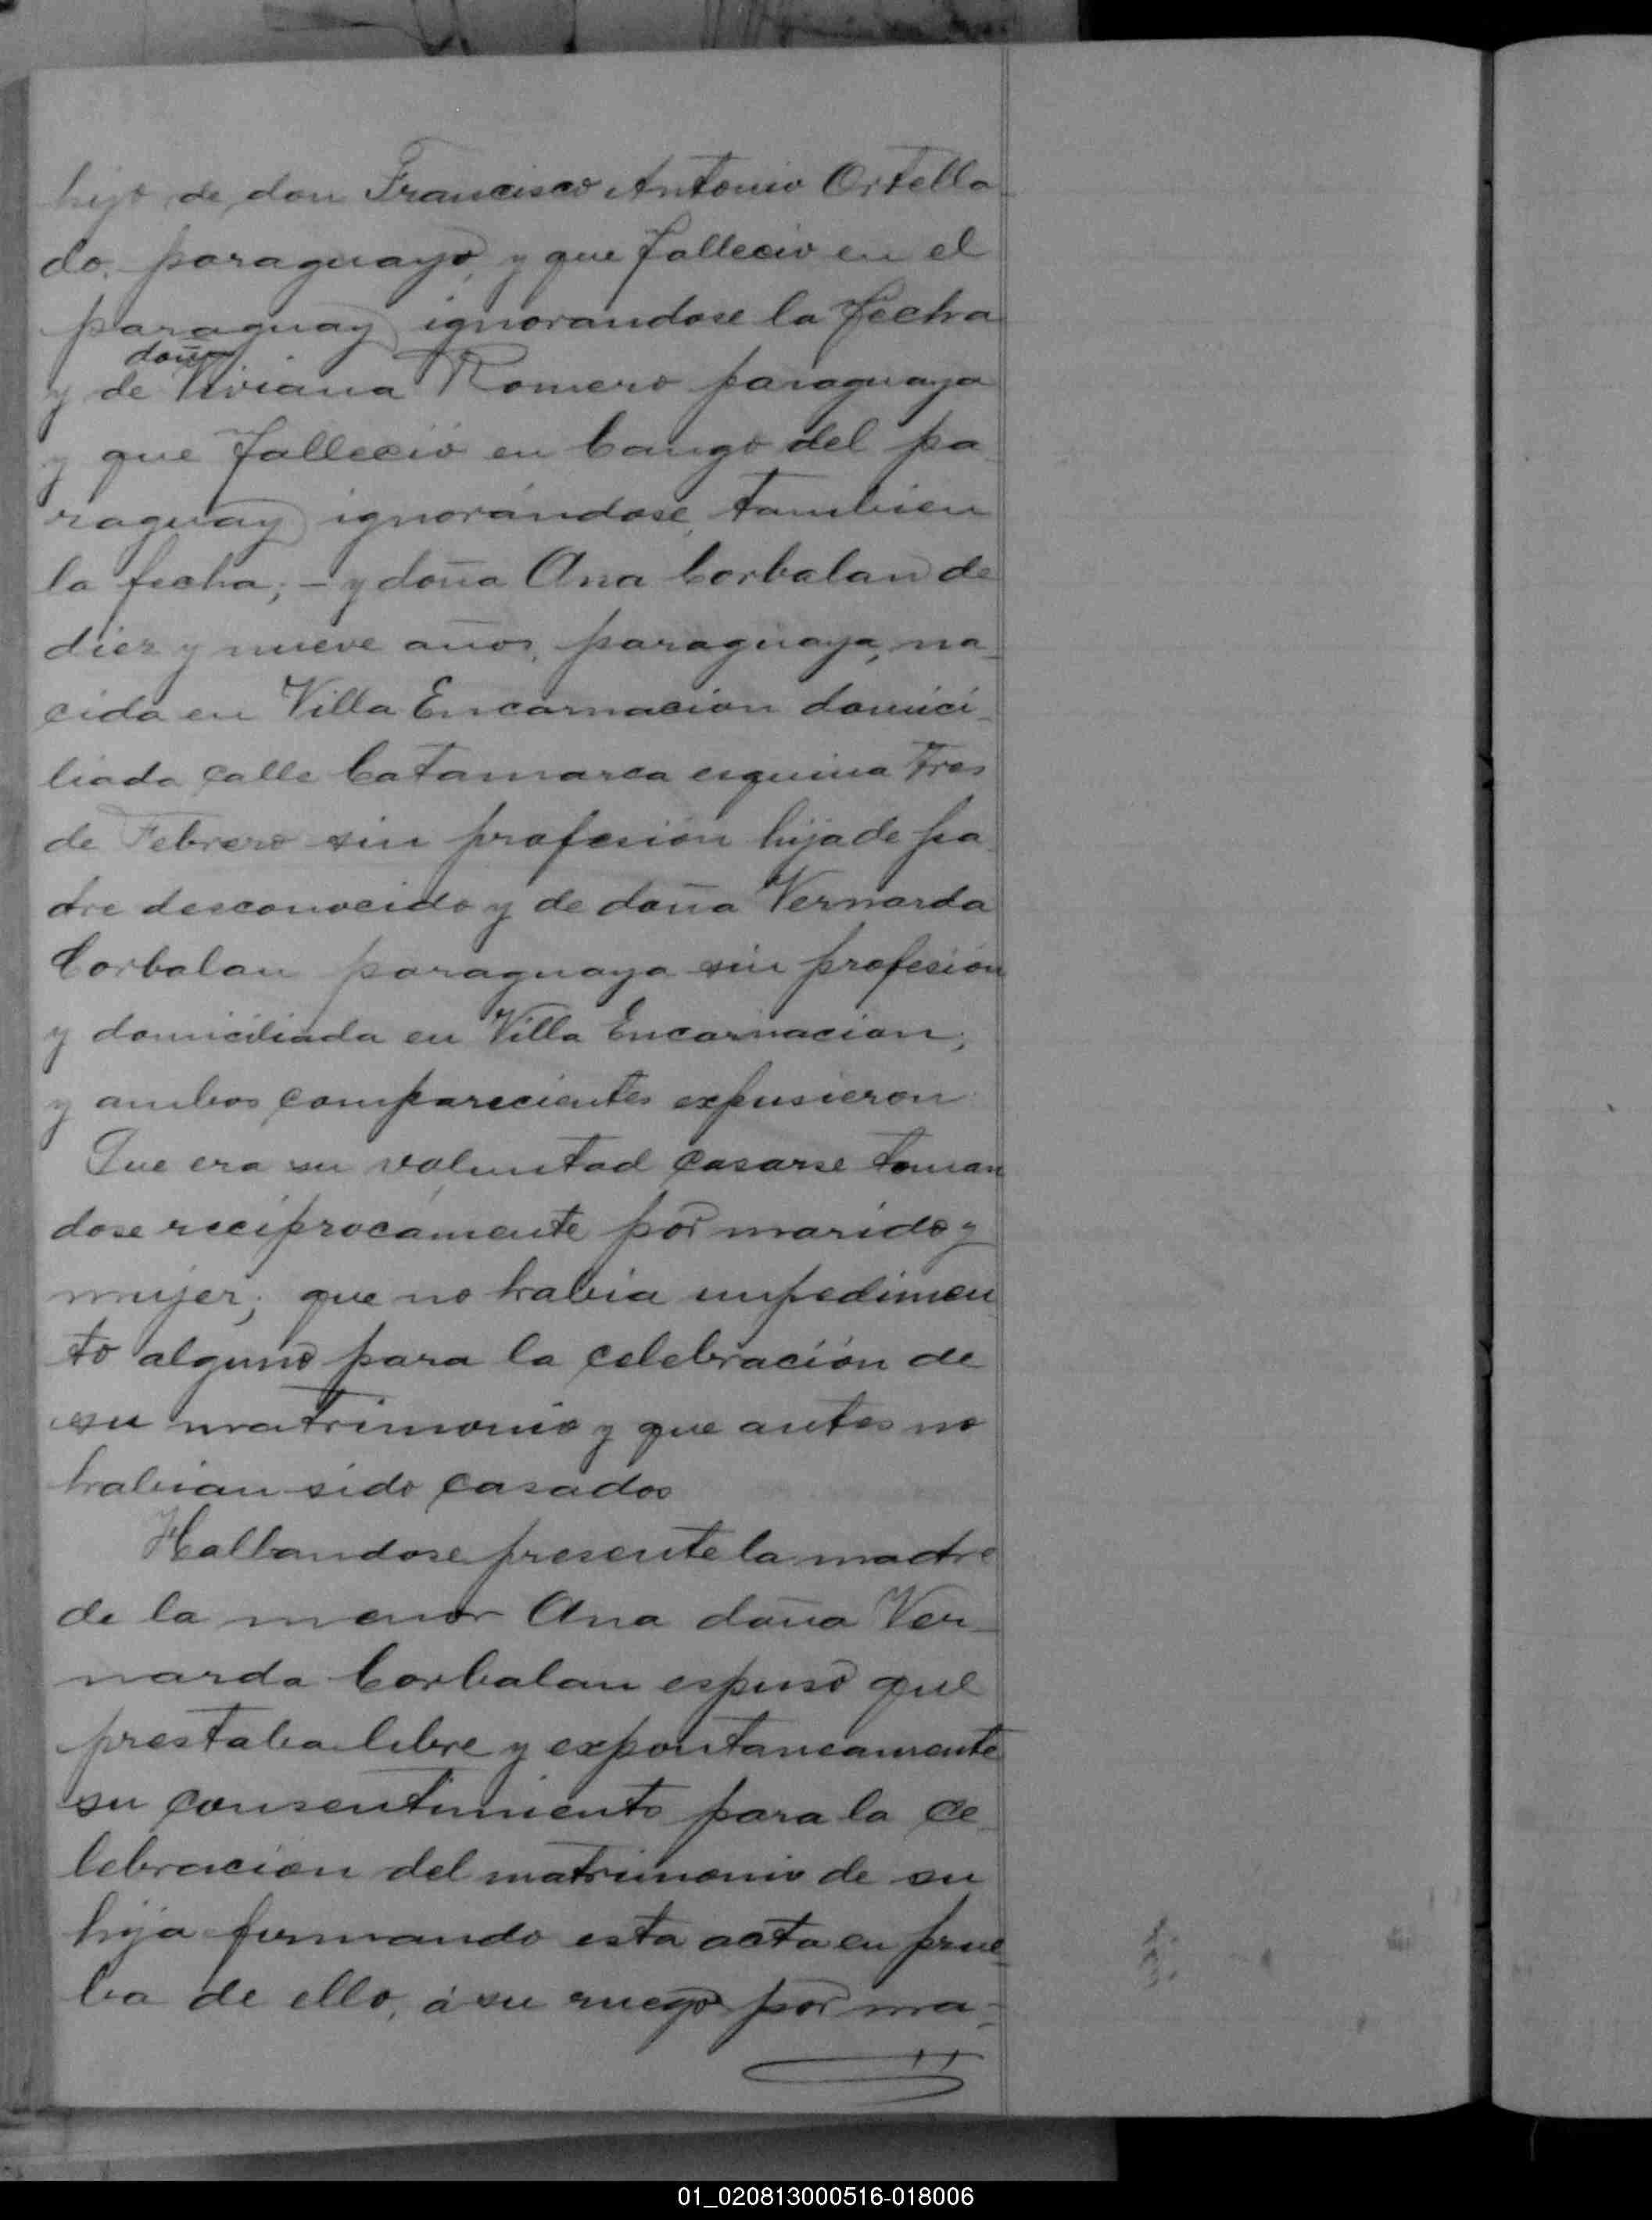 hijo de don Francisco Antonio Ortella-
do, paraguayo, y que falleció en el
paraguay ignorandose la fecha
doña
y de Viviana Romero paraguaya
y que falleció en Cango del pa
raguay ignorándose tambien
la fecha; – y doña Ana Corbalan de
diez y nueve años, paraguaya, na-
cida en Villa Encarnacion domici-
liada calle Catamarca esquina Tres
de Febrero sin profesión hija de pa-
dre desconocido y de doña Vernarda
Corbalan paraguaya sin profesión
y domiciliada en Villa Encarnacion;
y ambos comparecientes expusieron
Que era su voluntad casarse toman
dose recíprocamente por marido y
mujer; que no habia impedimen
to alguno para la celebración de
su matrimonio y que antes no
habian sido casados
Hallandose presente la madre
de la menor Ana doña Ver-
narda Corbalan espuso que
prestaba libre y expontaneamente
su consentimiento para la ce-
lebración del matrimonio de su
hija firmando esta acta en prue-
ba de ello, á su ruego por ma-
01_020813000516-018006